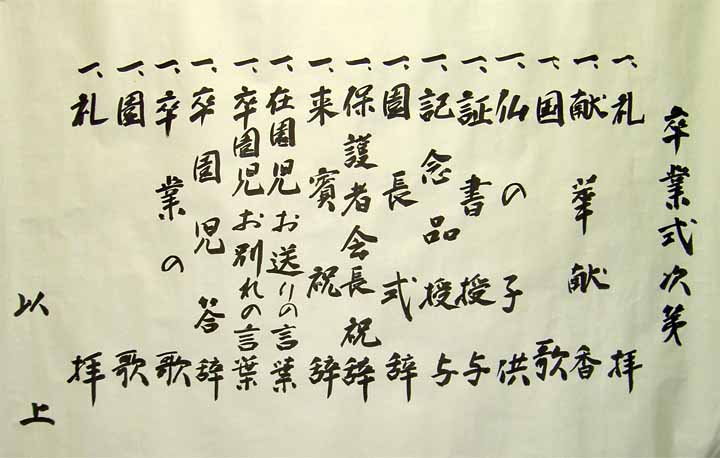 卒業式次第
一、礼拝
一、献華献香
一、国歌
一、仏の子供
一、証書授与
一、記念品授与
一、園長式辞
一、保護者会長祝辞
一、来賓祝辞
一、在園児お送りの言葉
一、卒園児お別れの言葉
一、卒園児答辞
一、卒業の歌
一、園歌
一、礼拝
以上